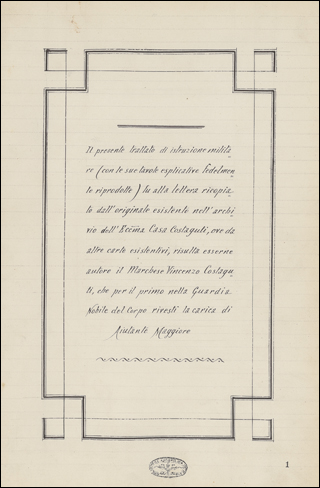 Il presente trattato di istruzione milita-
re (con le sue tavole esplicative fedelmen-
te riprodotte) fu alla lettera ricopia-
to dall'originale esistente nell'archi-
vio dell'Eccma Casa Costaguti, ove da
altre carte esistentivi, risulta esserne
autore il Marchese Vincenzo Costagu-
ti, che per il primo nella Guardia
Nobile del Corpo rivestì la carica di
Aiutante Maggiore
1